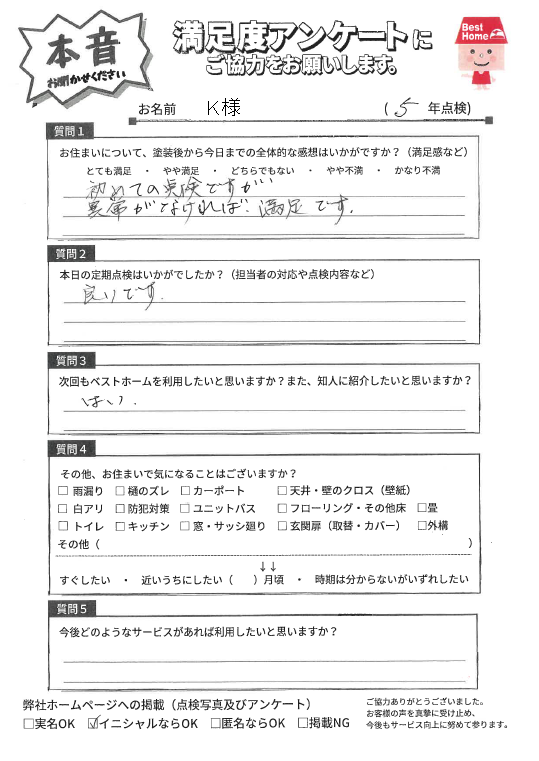 本音
お聞かせください
満足度アンケートに
ご協力をお願いします。
Best
Home
お名前 K様 ( 5 年点検)
質問1
お住まいについて、塗装後から今日までの全体的な感想はいかがですか？（満足感など）
とても満足 ・ やや満足 ・ どちらでもない ・ やや不満 ・ かなり不満
初めての点検ですが
異常がなければ満足です.
質問2
本日の定期点検はいかがでしたか？（担当者の対応や点検内容など）
良いです.
質問3
次回もベストホームを利用したいと思いますか？また、知人に紹介したいと思いますか？
はい.
質問4
その他、お住まいで気になることはございますか？
□ 雨漏り □ 樋のズレ □ カーポート □ 天井・壁のクロス（壁紙）
□ 白アリ □ 防犯対策 □ ユニットバス □ フローリング・その他床 □畳
□ トイレ □ キッチン □ 窓・サッシ廻り □ 玄関扉（取替・カバー） □外構
その他（ ）
↓↓
すぐしたい ・ 近いうちにしたい（ ）月頃 ・ 時期は分からないがいずれしたい
質問5
今後どのようなサービスがあれば利用したいと思いますか？
弊社ホームページへの掲載（点検写真及びアンケート）
□実名OK ☑イニシャルならOK □匿名ならOK □掲載NG
ご協力ありがとうございました。
お客様の声を真摯に受け止め、
今後もサービス向上に努めて参ります。